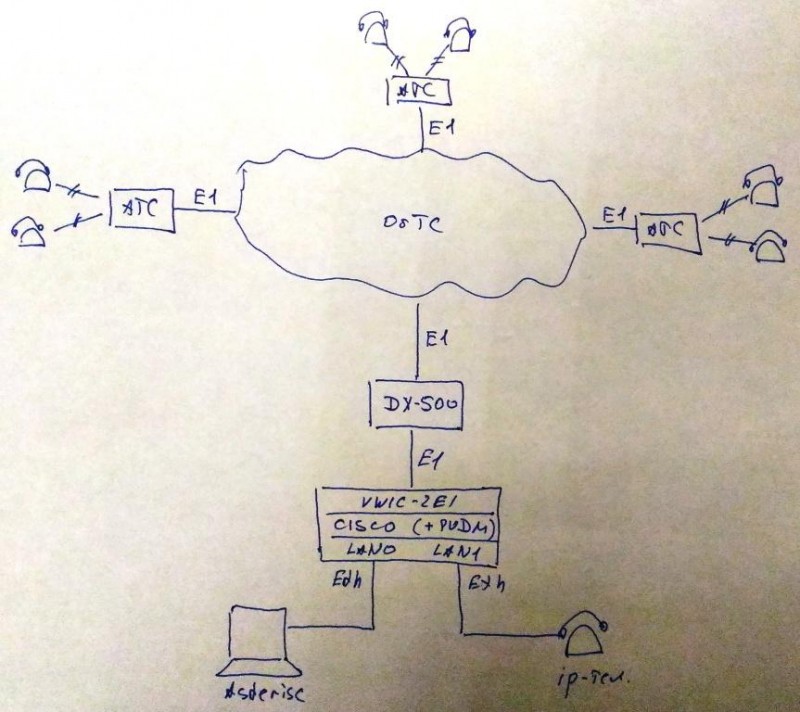 АТС
E1
АТС
E1
ОбТС
E1
АТС
E1
DX-500
E1
VWIC-2E1
CISCO (+PVDM)
LAN0 LAN1
Eth Eth
Asterisc
ip-тел.